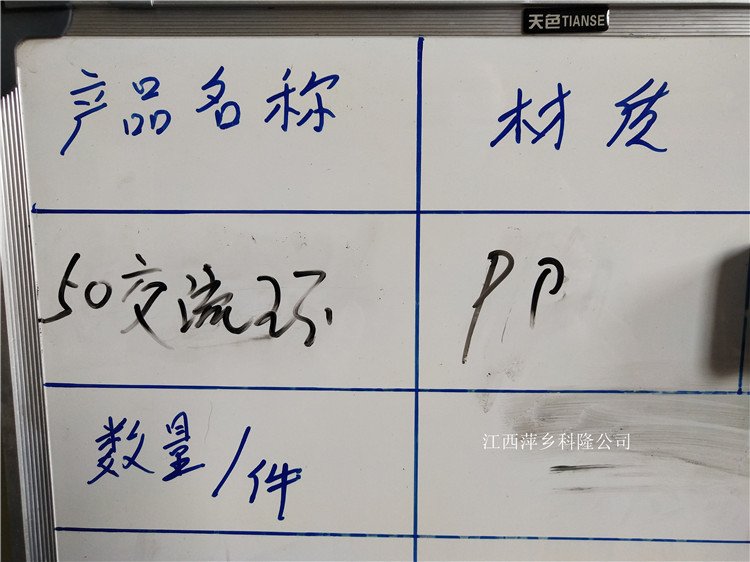 天色TIANSE
产品名称 材质
50交流环 PP
数量/件
江西萍乡科隆公司